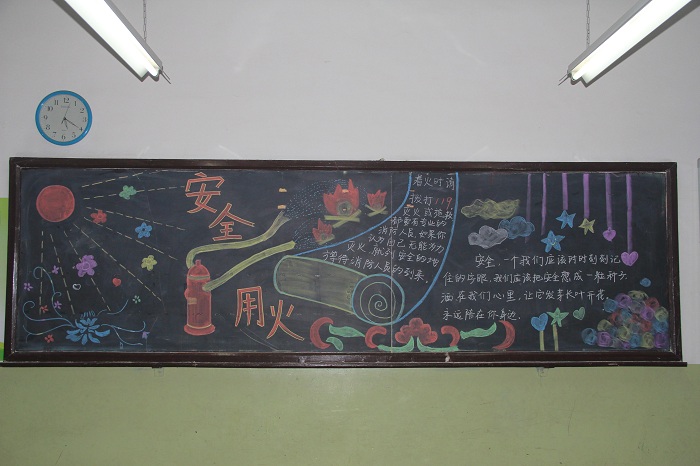 安全
用火
着火时请
拨打119
火灾或抢救
都要有专业的
消防人员,如果你
认为自己无能为力
灭火,就到安全的地
等待消防人员的到来。
安全,一个我们应该时时刻刻记
住的字眼。我们应该把安全想成一粒种子
洒在我们心里,让它发芽长叶开花,
永远陪在你身边。